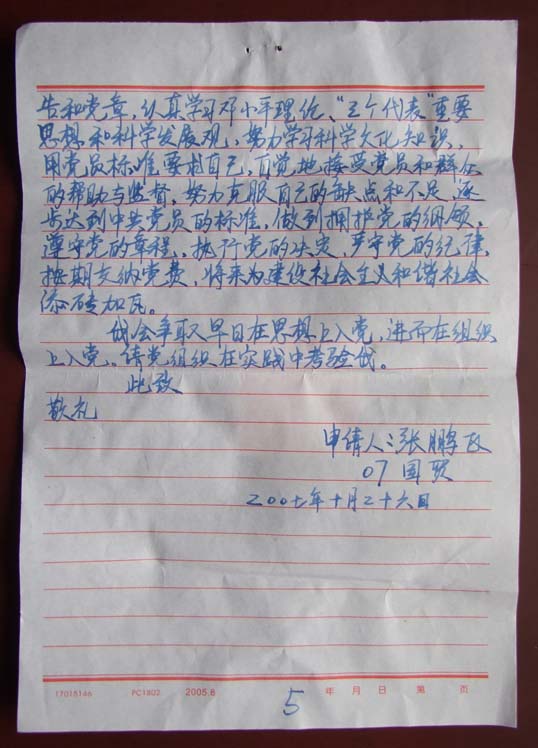 告和党章，认真学习邓小平理论、“三个代表”重要
思想和科学发展观，努力学习科学文化知识，
用党员标准要求自己，自觉地接受党员和群众
的帮助与监督，努力克服自己的缺点和不足，逐
步达到中共党员的标准，做到拥护党的纲领，
遵守党的章程，执行党的决定，严守党的纪律，
按期交纳党费，将来为建设社会主义和谐社会
添砖加瓦。
我会争取早日在思想上入党，进而在组织
上入党。请党组织在实践中考验我。
此致
敬礼
申请人：张鹏飞
07国贸
二00七年十月二十六日
17015146 PC1802 2005.6 5 年 月 日 第 页